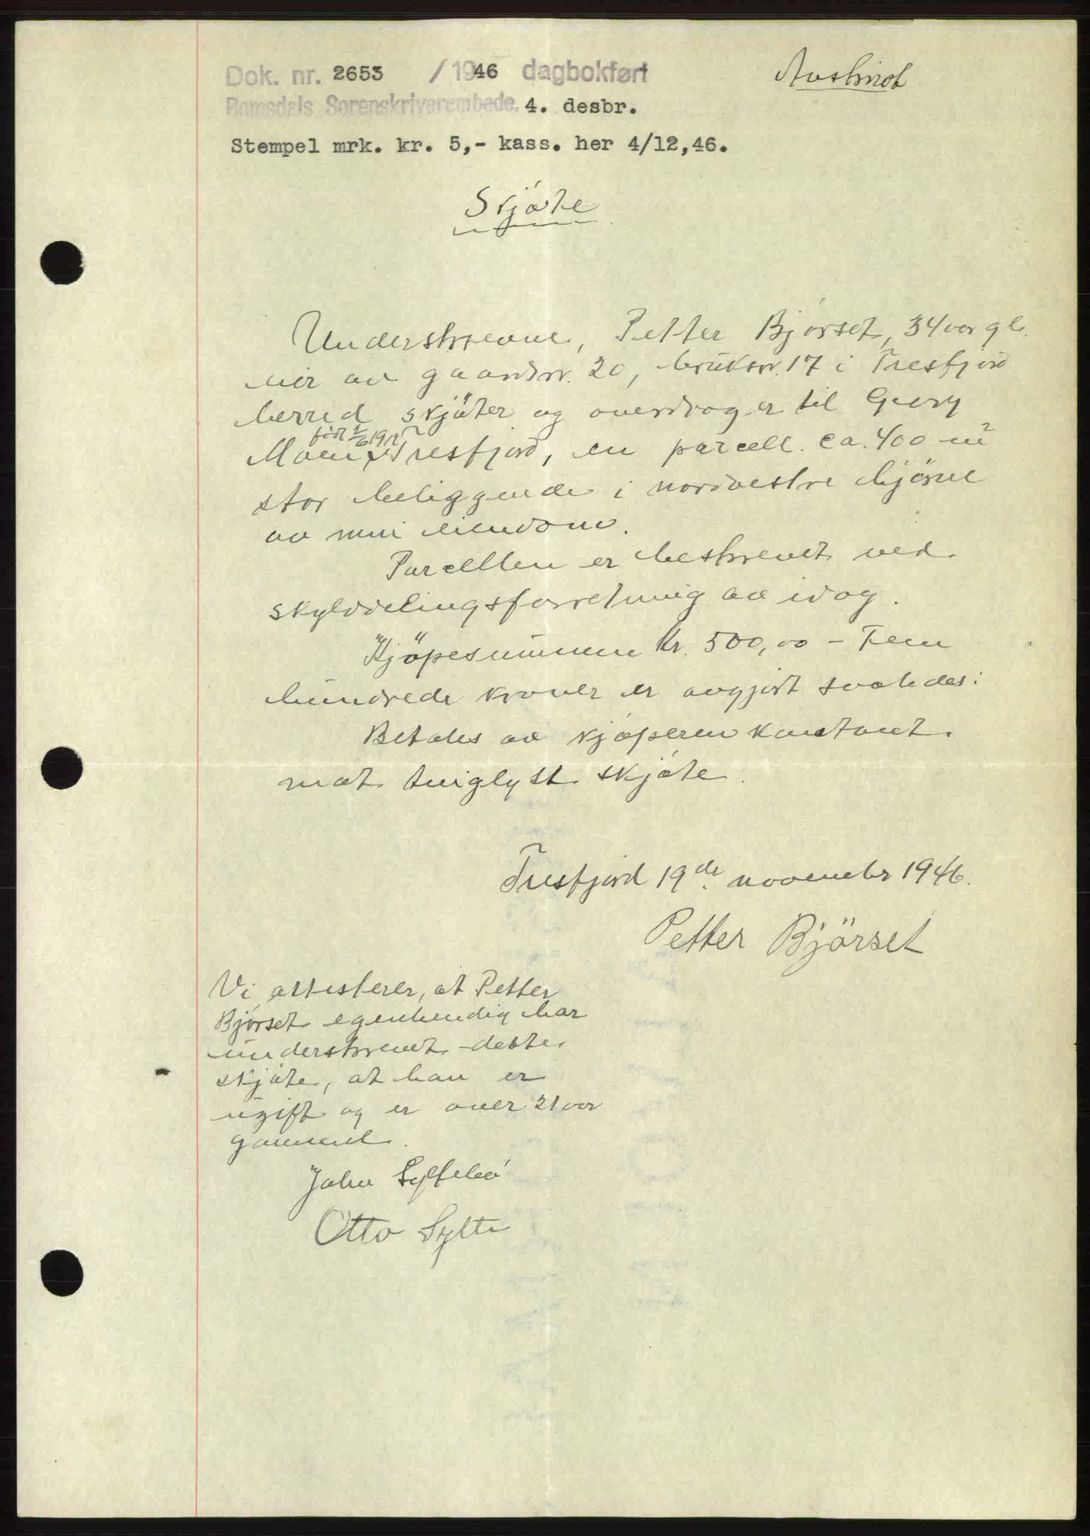 Dok. nr. 2653 / 1946 dagbokført
Avskrift
Romsdals Sorenskriverembede. 4. desbr.
Stempel mrk. kr. 5,- kass. her 4/12,46.
Skjöte
Underskrevne, Petter Bjørset, 34 aar gl.
eier av gaardsnr. 20, bruksnr. 17 i Tresfjord
herred skjöter og overdrager til Georg
Moen Tresfjord, en parcell ca. 400 m²
stor beliggende i nordvestre hjörne
av min eiendom.
Parcellen er beskrevet ved
skylddelingsforretning av idag.
Kjöpesummen kr. 500,00 - Fem
hundrede kroner er avgjort saaledes:
Betales av kjöperen kontant
mot tinglyst skjöte.
Tresfjord 19de november 1946.
Petter Björset
Vi attesterer, at Petter
Bjørset egenhendig har
underskrevet dette
skjöte, at han er
ugift og er over 21 aar
gammel.
John Sylte
Otto Sylte